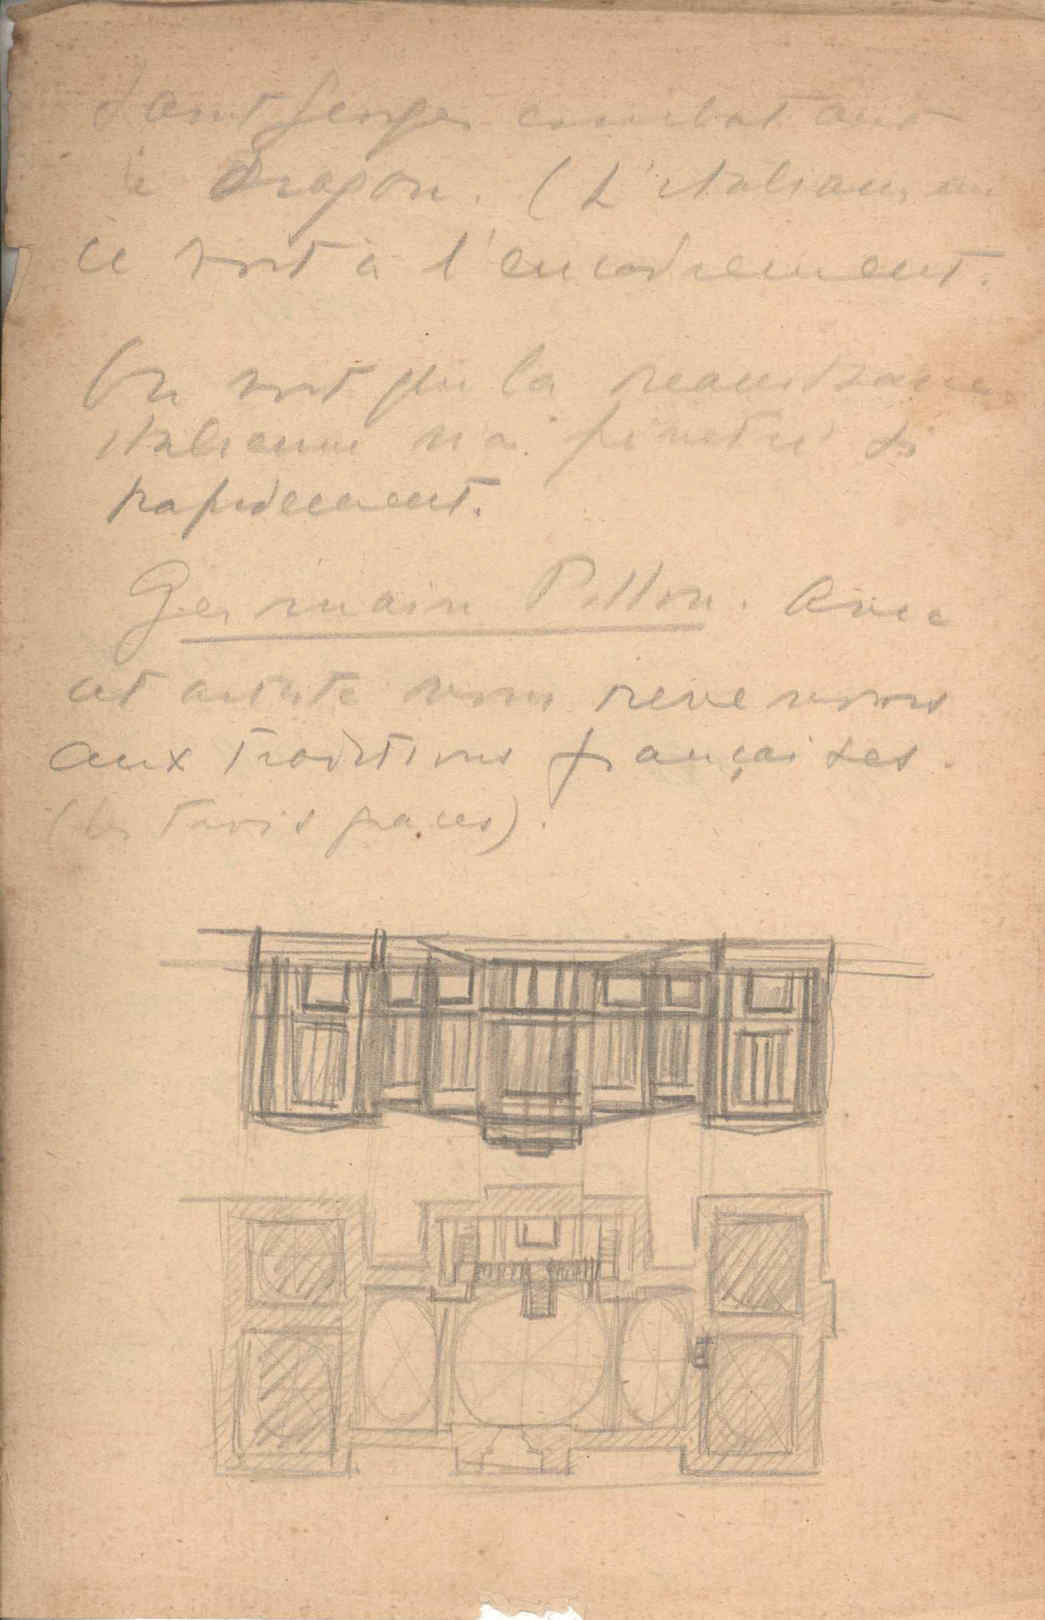 Saint Georges combatant
le Dragon. (L'italianisme
ce voit à l'encadrement.
On voit que la renaissance
italienne n'a pénétré si
rapidement.
Germain Pillon. Avec
cet artiste nous revenons
aux traditions françaises.
(les trois graces).